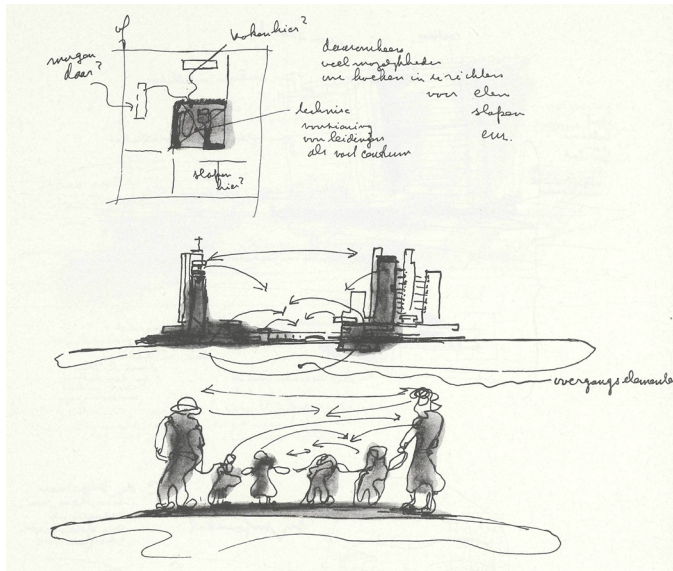 of
koken hier?
morgen
daar?
daaromheen
veel mogelijkheden
om hoeken in te richten
voor eten
slapen
enz.
technise
voorziening
van leidingen
als vast centrum
slapen
hier?
overgangselementen